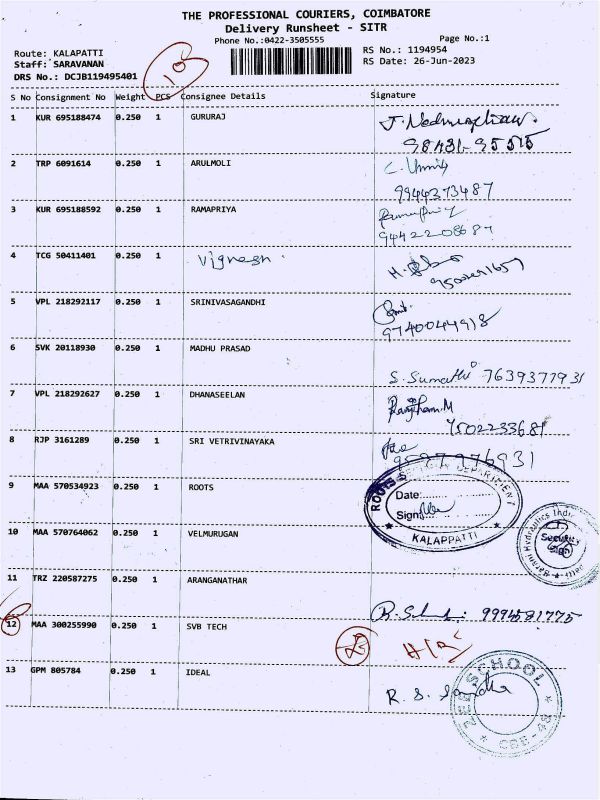 THE PROFESSIONAL COURIERS, COIMBATORE
Delivery Runsheet - SITR
Phone No.:0422-3505555 Page No.:1
Route: KALAPATTI RS No.: 1194954
Staff: SARAVANAN RS Date: 26-Jun-2023
DRS No.: DCJB119495401
S No Consignment No Weight PCS Consignee Details Signature
1 KUR 695188474 0.250 1 GURURAJ
98431-95515
2 TRP 6091614 0.250 1 ARULMOLI
9944373487
3 KUR 695188592 0.250 1 RAMAPRIYA
9442208687
4 TCG 50411401 0.250 1 Vignesh.
5 VPL 218292117 0.250 1 SRINIVASAGANDHI
9740044918
6 SVK 20118930 0.250 1 MADHU PRASAD
S. Sumathi 7639377931
7 VPL 218292627 0.250 1 DHANASEELAN
Ranjitham.M
7502233681
8 RJP 3161289 0.250 1 SRI VETRIVINAYAKA
9 MAA 570534923 0.250 1 ROOTS
ROOTS SECURITY DEPARTMENT
Date:
Sign:
KALAPPATTI
10 MAA 570764062 0.250 1 VELMURUGAN
Security
Sign
11 TRZ 220587275 0.250 1 ARANGANATHAR
9994581775
12 MAA 300255990 0.250 1 SVB TECH
13 GPM 805784 0.250 1 IDEAL
SCHOOL
CBE-48